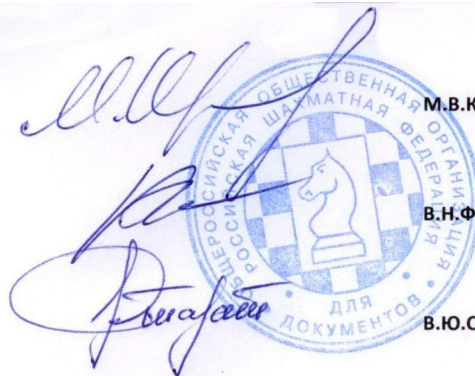 М.В.К
ОБЩЕРОССИЙСКАЯ ОБЩЕСТВЕННАЯ ОРГАНИЗАЦИЯ
РОССИЙСКАЯ ШАХМАТНАЯ ФЕДЕРАЦИЯ
В.Н.Ф
ДЛЯ
ДОКУМЕНТОВ
В.Ю.С